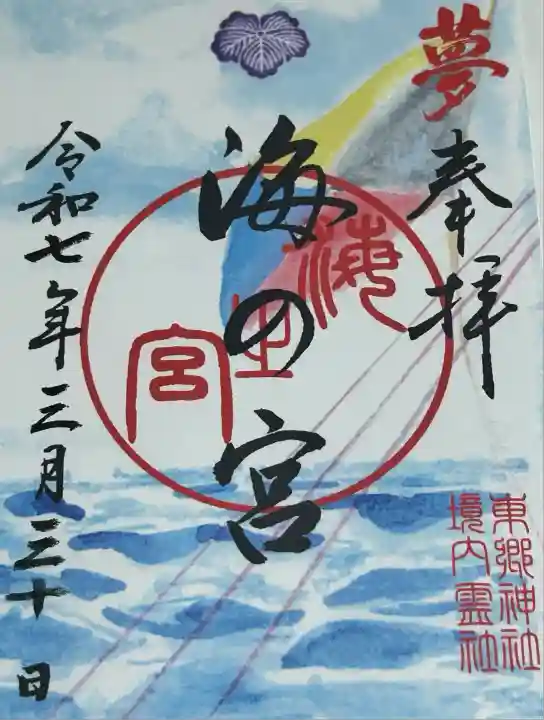 夢
奉拝
海の宮
海之宮
東郷神社
境内霊社
令和七年三月三十日